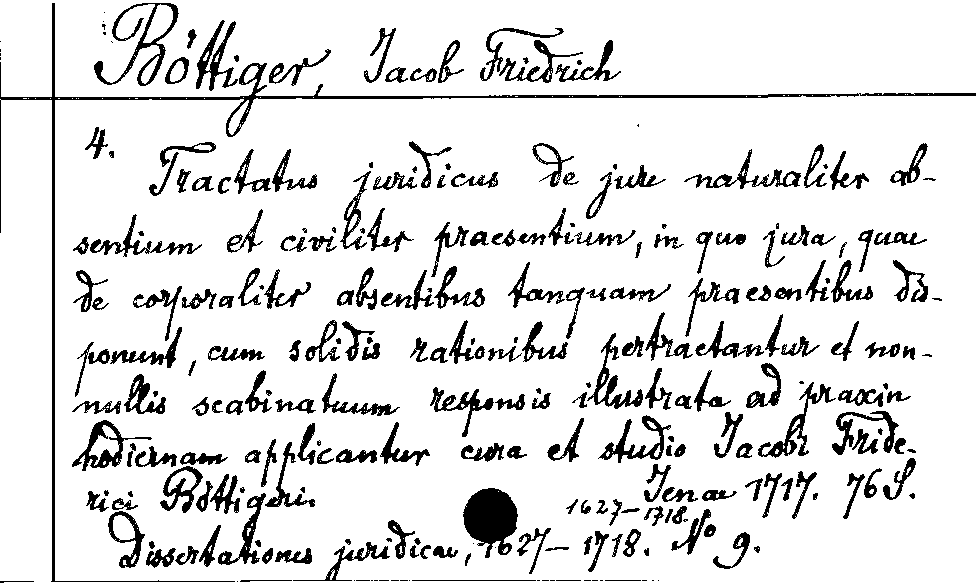 Böttiger, Jacob Friedrich
4.
Tractatus juridicus de jure naturaliter ab-
sentium et civiliter praesentium, in quo jura, quae
de corporaliter absentibus tanquam praesentibus dis-
ponunt, cum solidis rationibus pertractantur et non-
nullis scabinatuum responsis illustrata ad praxin
hodiernam applicantur cura et studio Jacobi Fride-
rici Böttigeri. Jenae 1717. 76 S.
1627–1718
Dissertationes juridicae, 1627–1718. No 9.